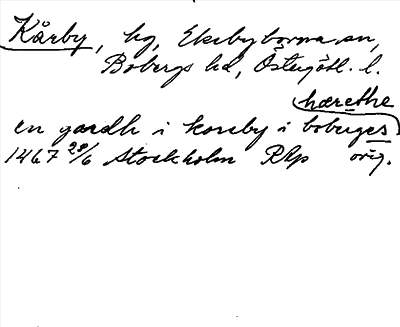 Kårby, hg, Ekebyborna sn,
Bobergs hd, Östergötl. l.
hærethe
en gardh i koreby i boberges
1467 28/6 Stockholm RAp orig.